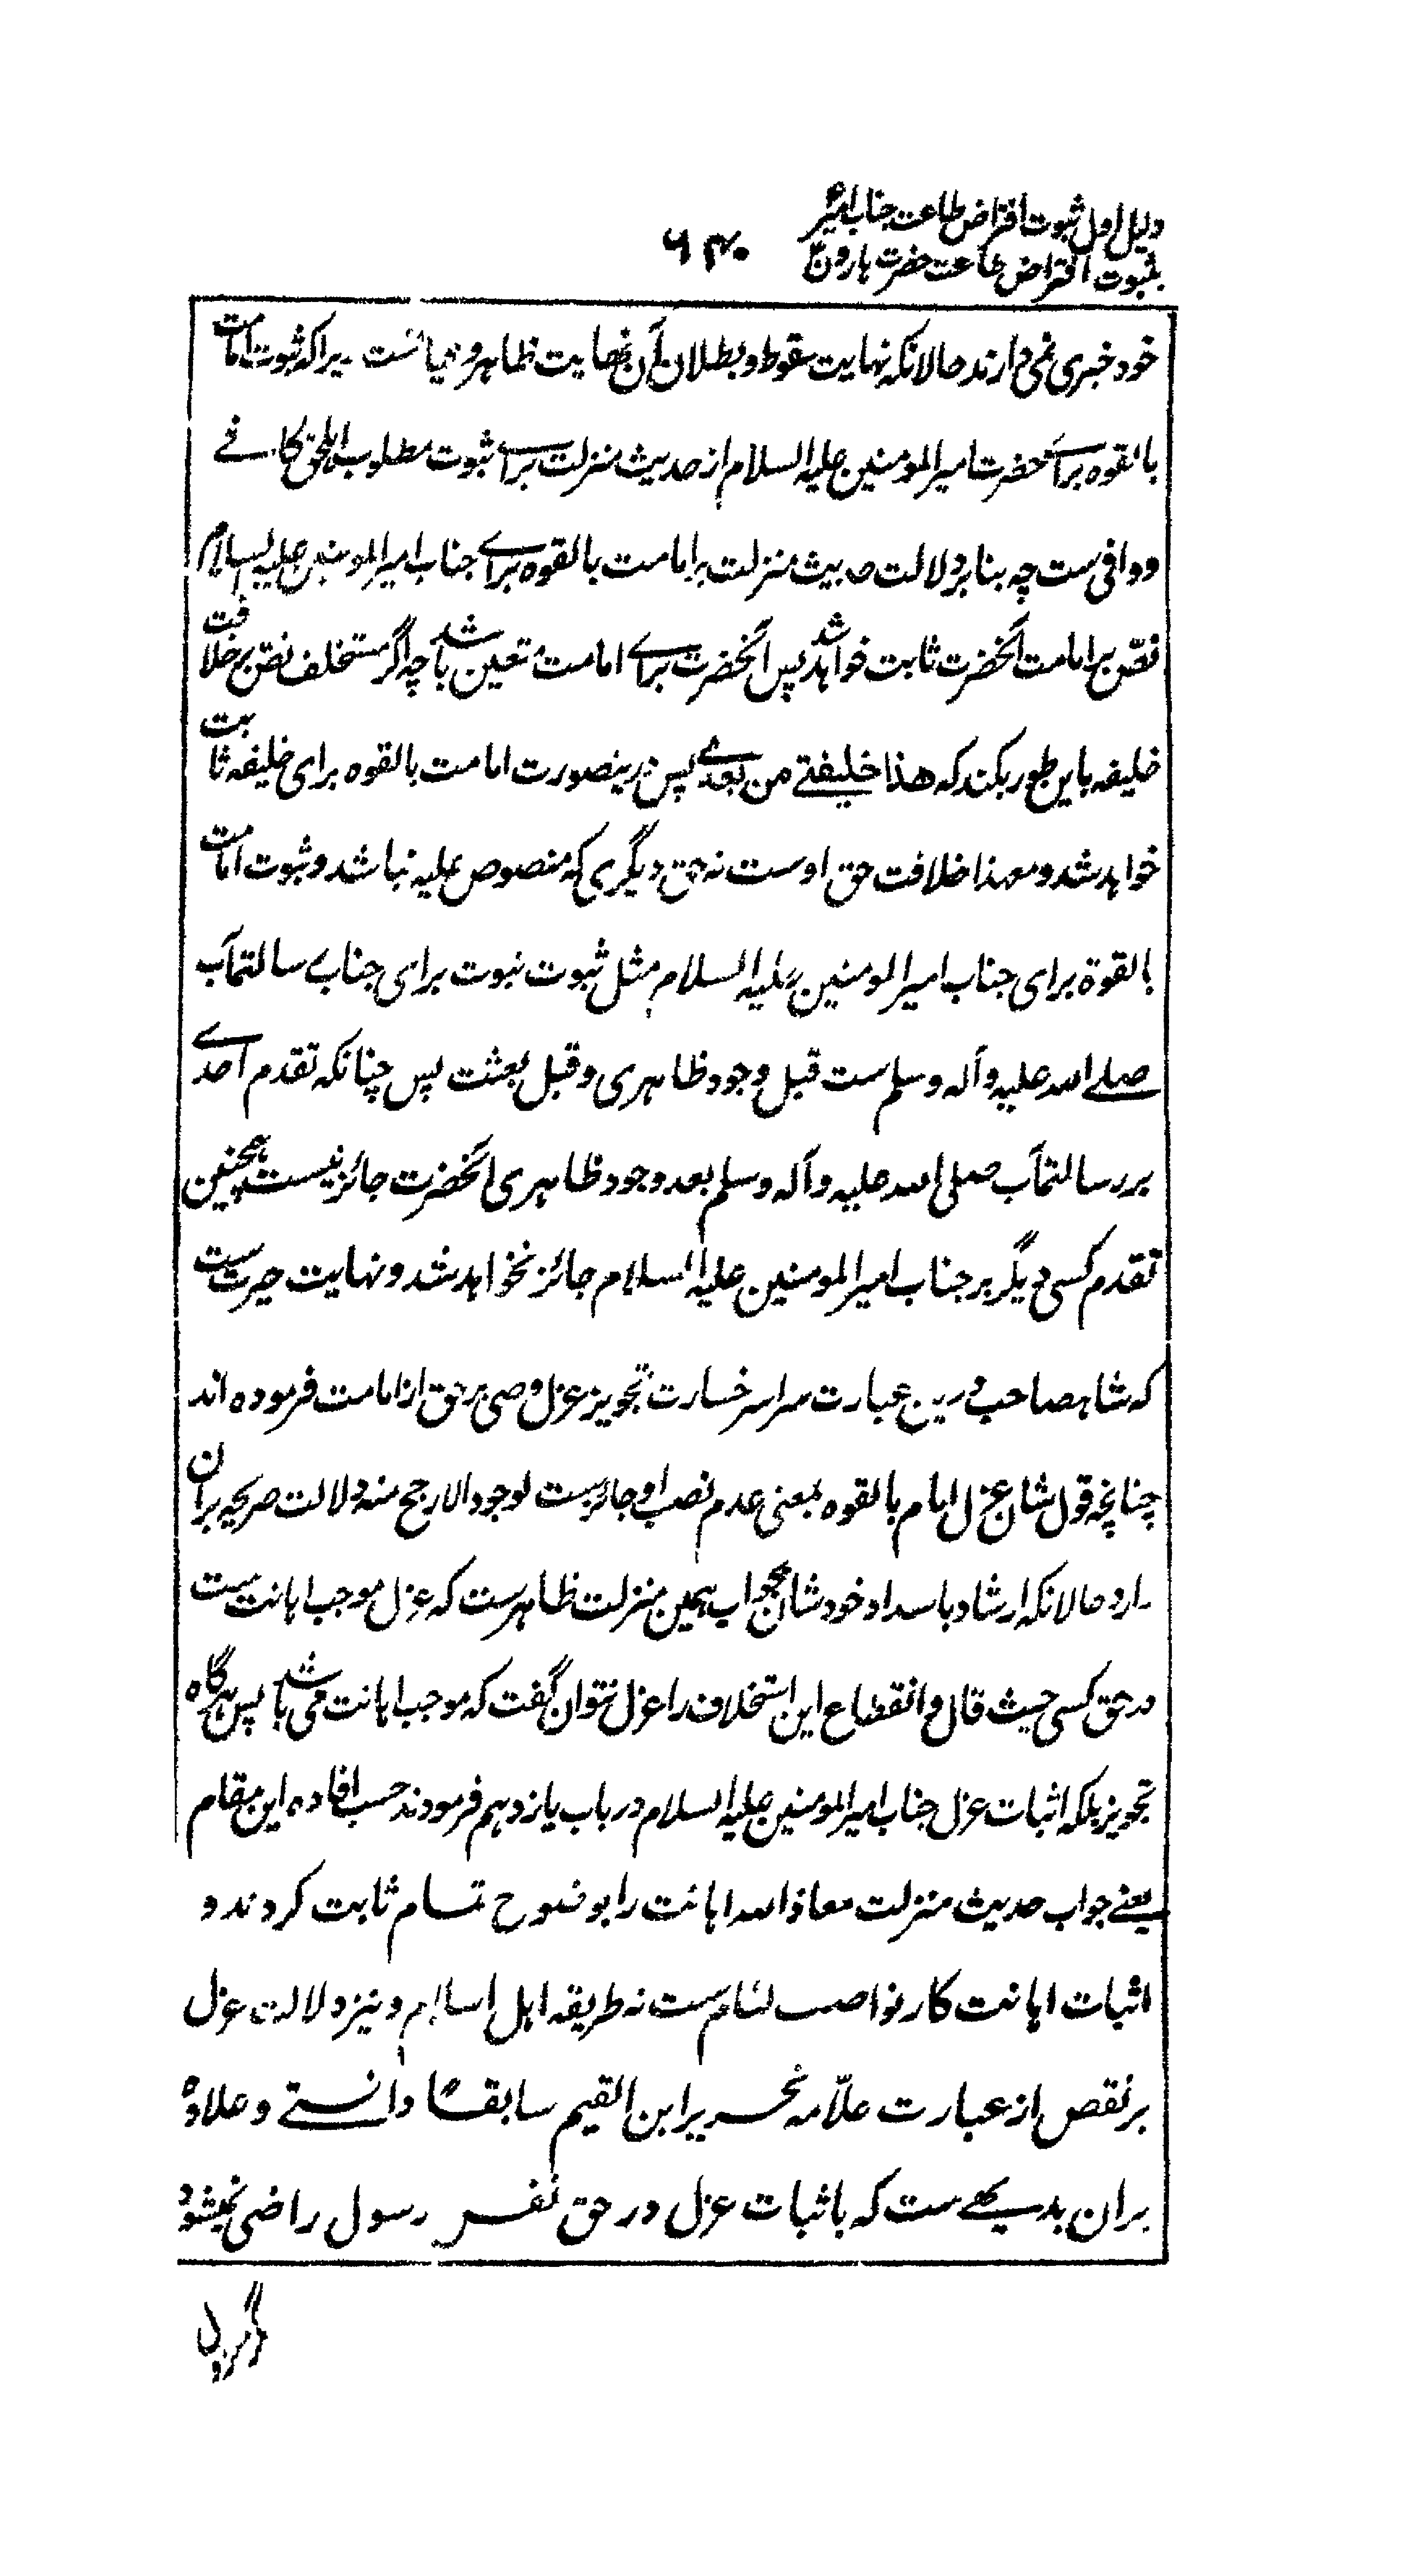 دلیل اول ثبوت افتراض طاعت جناب امیرؑ
بثبوت افتراض طاعت حضرت هارونؑ
۶۴۰
خود خبری نمی دارند حالانکه نهایت سقوط و بطلان آن نهایت ظاهر و نمایانست زیراکه ثبوت امامت
بالقوه برای حضرت امیرالمومنین علیه السلام از حدیث منزلت برای ثبوت مطلوب اهلحق کافے
و وافی ست چه بنابر دلالت حدیث منزلت بر امامت بالقوه برای جناب امیرالمومنین علیه السلام
نصّ بر امامت آنحضرت ثابت خواهد شد پس آنحضرت برای امامت متعین باشد چه اگر مستخلف نصّ بر خلافت
خلیفه باین طور بکند که هذا خلیفتے من بعدے پس درینصورت امامت بالقوه برای خلیفه ثابت
خواهد شد و معهذا خلافت حق اوست نه حق دیگری که منصوص علیه نباشد و ثبوت امامت
بالقوة برای جناب امیرالمومنین علیه السلام مثل ثبوت نبوت برای جناب رسالتمآب
صلے الله علیه وآله وسلم ست قبل وجود ظاهری و قبل بعثت پس چنانکه تقدم احدے
بر رسالتمآب صلی الله علیه وآله وسلم بعد وجود ظاهری آنحضرت جائز نیست همچنین
تقدم کسی دیگر بر جناب امیرالمومنین علیه السلام جائز نخواهد شد و نهایت حیرت ست
که شاهصاحب درین عبارت سراسر خسارت تجویز عزل وصی برحق از امامت فرموده اند
چنانچه قول شان عزل امام بالقوه بمعنی عدم نصب او جائزست لوجود الارجح منه دلالت صریحه بران
دارد حالانکه ارشاد باسداد خود شان بجواب همین منزلت ظاهرست که عزل موجب اهانت ست
در حق کسی حیث قال و انقطاع این استخلاف را عزل نتوان گفت که موجب اهانت می باشد پس هرگاه
تجویز بلکه اثبات عزل جناب امیرالمومنین علیه السلام در باب یازدهم فرمودند حسب افاده این مقام
یعنے جواب حدیث منزلت معاذ الله اهانت را بوضوح تمام ثابت کردند و
اثبات اهانت کار نواصب لئام ست نه طریقه اهل اسلام و نیز دلالت عزل
بر نقص از عبارت علّامه نحریر ابن القیم سابقًا دانستے و علاوه
بران بدیهے ست که باثبات عزل در حق نفس رسول راضی نمیشود